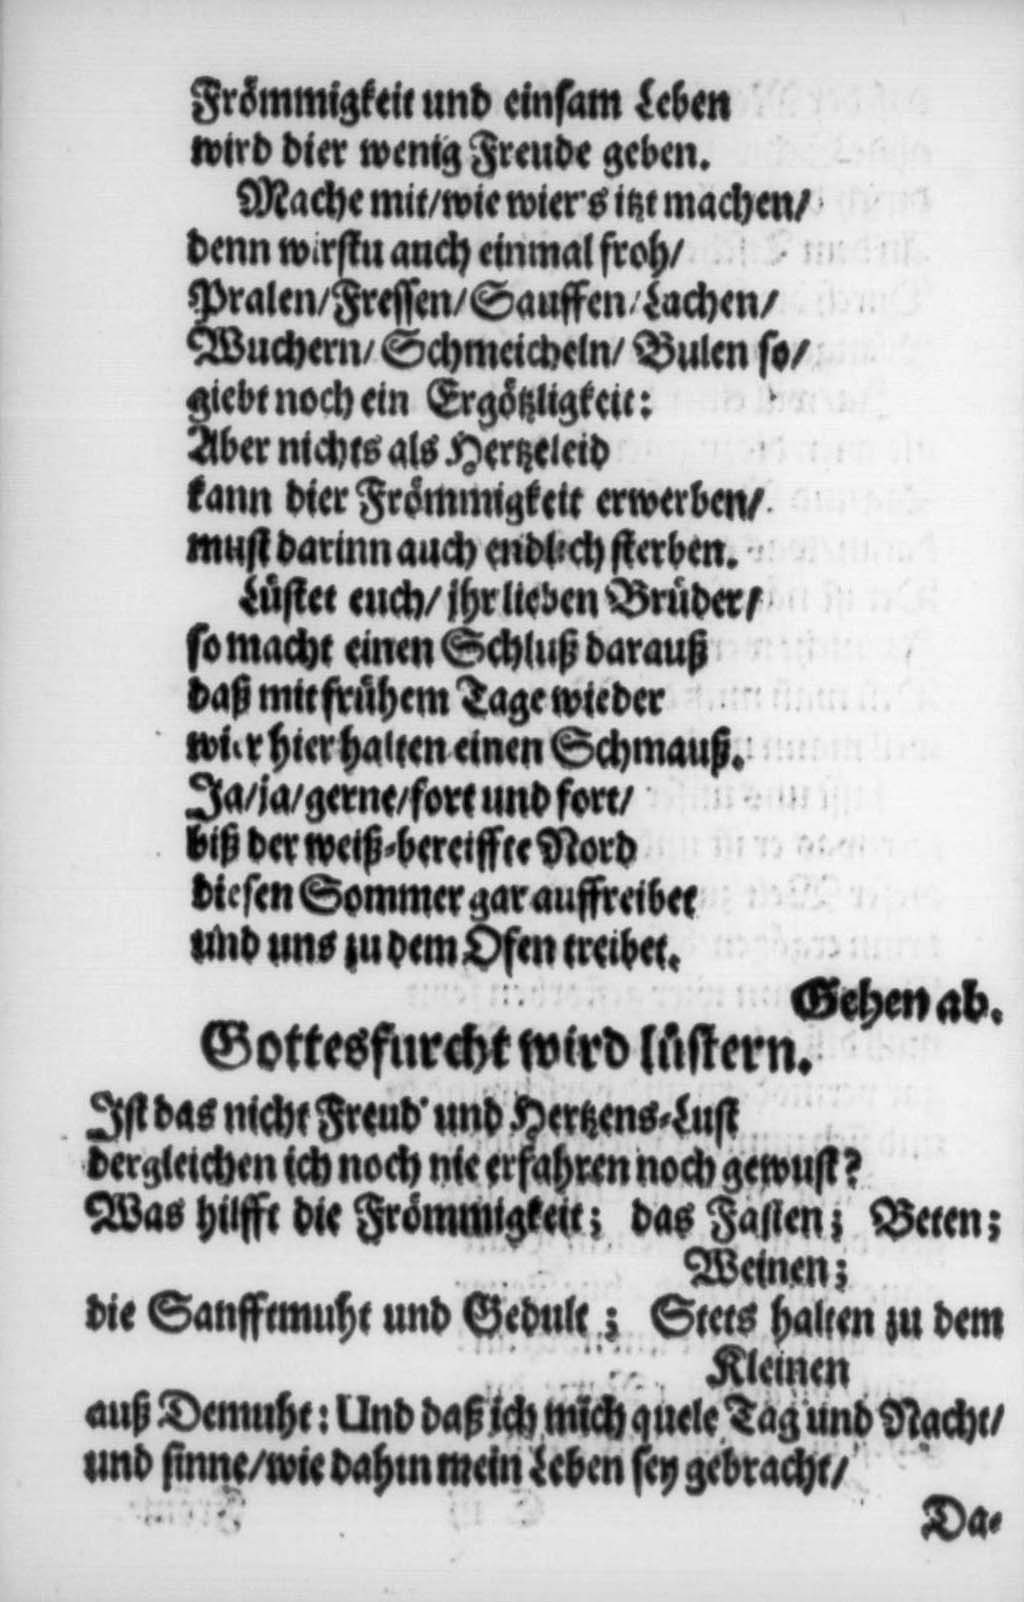 Frömmigkeit und einsam Leben
wird dier wenig Freude geben.
Mache mit/wie wier's itzt machen/
denn wirstu auch einmal froh/
Pralen/Fressen/Sauffen/Lachen/
Wuchern/Schmeicheln/Bulen so/
giebt noch ein Ergötzligkeit:
Aber nichts als Hertzeleid
kann dier Frömmigkeit erwerben/
must darinn auch endlich sterben.
Lüstet euch/jhr lieben Brüder/
so macht einen Schluß darauß
daß mit frühem Tage wieder
wier hier halten einen Schmauß.
Ja/ja/gerne/fort und fort/
biß der weiß-bereiffte Nord
diesen Sommer gar auffreibet
und uns zu dem Ofen treibet.
Gehen ab.
Gottesfurcht wird lüstern.
Jst das nicht Freud' und Hertzens-Lust
dergleichen ich noch nie erfahren noch gewust?
Was hilfft die Frömmigkeit; das Fasten; Beten;
Weinen;
die Sanfftmuht und Gedult; Stets halten zu dem
Kleinen
auß Demuht: Und daß ich mich quele Tag und Nacht/
und sinne/wie dahin mein Leben sey gebracht/
Da-